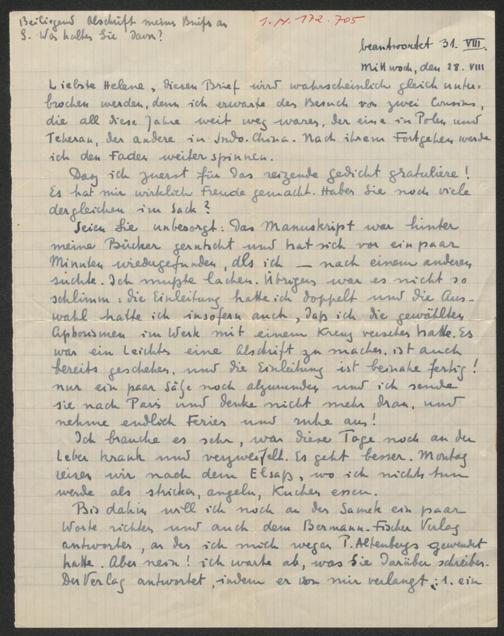 Beiliegend Abschrift meines Briefs an
S. Was halten Sie davon?
1.N.172.705
beantwortet 31. VIII.
Mittwoch, den 28. VIII
Liebste Helene, diesen Brief wird wahrscheinlich gleich unter-
brochen werden, denn ich erwarte den Besuch von zwei Cousins,
die all diese Jahre weit weg waren, der eine in Polen und
Teheran, der andere in Indo-China. Nach ihrem Fortgehen werde
ich den Faden weiter spinnen.
Darf ich zuerst für das reizende Gedicht gratulieren!
Es hat mir wirklich Freude gemacht. Haben Sie noch viele
dergleichen im Sack?
Seien Sie unbesorgt: das Manuskript war hinter
meine Bücher gerutscht und hat sich vor ein paar
Minuten wiedergefunden, als ich — nach einem anderen
suchte. Ich mußte lachen. Übrigens war es nicht so
schlimm: die Einleitung hatte ich doppelt und die Aus-
wahl hatte ich insofern auch, daß ich die gewählten
Aphorismen im Werk mit einem Kreuz versehen hatte. Es
war ein Leichtes eine Abschrift zu machen, ist auch
bereits geschehen, und die Einleitung ist beinahe fertig!
nur ein paar Sätze noch abzurunden und ich sende
sie nach Paris und denke nicht mehr dran, und
nehme endlich Ferien und ruhe aus!
Ich brauche es sehr, war diese Tage noch an der
Leber krank und verzweifelt. Es geht besser. Montag
reisen wir nach dem Elsaß, wo ich nichts tun
werde als stricken, angeln, Kuchen essen.
Bis dahin will ich noch an den Samek ein paar
Worte richten und auch dem Bermann-Fischer Verlag
antworten, an den ich mich wegen P. Altenbergs gewendet
hatte. Aber nein! ich warte ab, was Sie darüber schreiben.
Der Verlag antwortet, indem er von mir verlangt: 1. ein